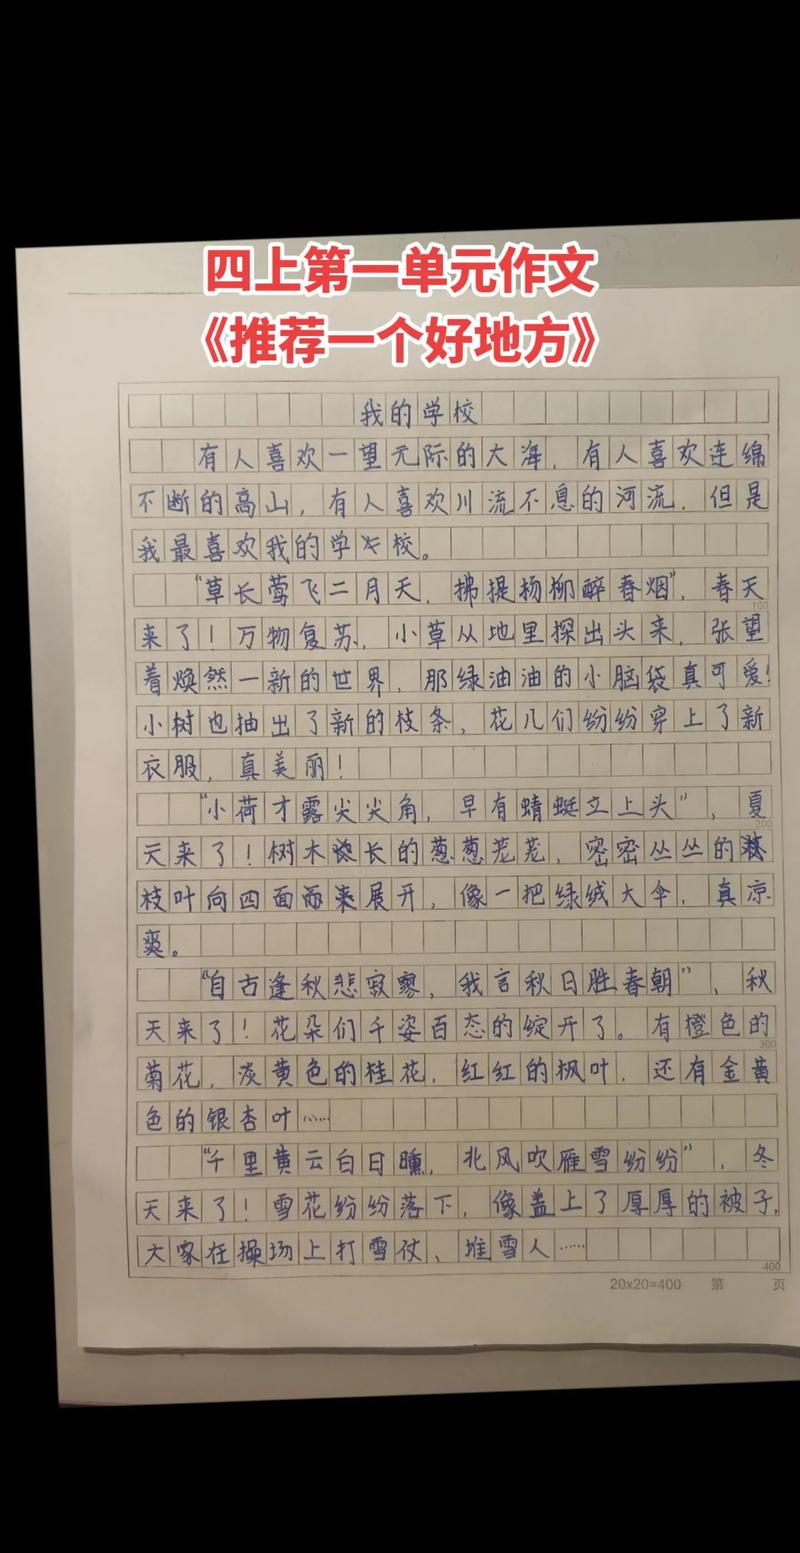 四上第一单元作文
《推荐一个好地方》
我的学校
有人喜欢一望无际的大海，有人喜欢连绵
不断的高山，有人喜欢川流不息的河流，但是
我最喜欢我的学校。
“草长莺飞二月天，拂提杨柳醉春烟”，春天
100
来了！万物复苏，小草从地里探出头来，张望
着焕然一新的世界，那绿油油的小脑袋真可爱！
小树也抽出了新的枝条，花儿们纷纷穿上了新
衣服，真美丽！
“小荷才露尖尖角，早有蜻蜓立上头”，夏
200
天来了！树木长的葱葱茏茏，密密丛丛的
枝叶向四面而来展开，像一把绿绒大伞，真凉
爽。
“自古逢秋悲寂寥，我言秋日胜春朝”，秋
天来了！花朵们千姿百态的绽开了。有橙色的
300
菊花，淡黄色的桂花，红红的枫叶，还有金黄
色的银杏叶……
“千里黄云白日曛，北风吹雁雪纷纷”，冬
天来了！雪花纷纷落下，像盖上了厚厚的被子，
大家在操场上打雪仗、堆雪人……
400
20x20=400 第 页